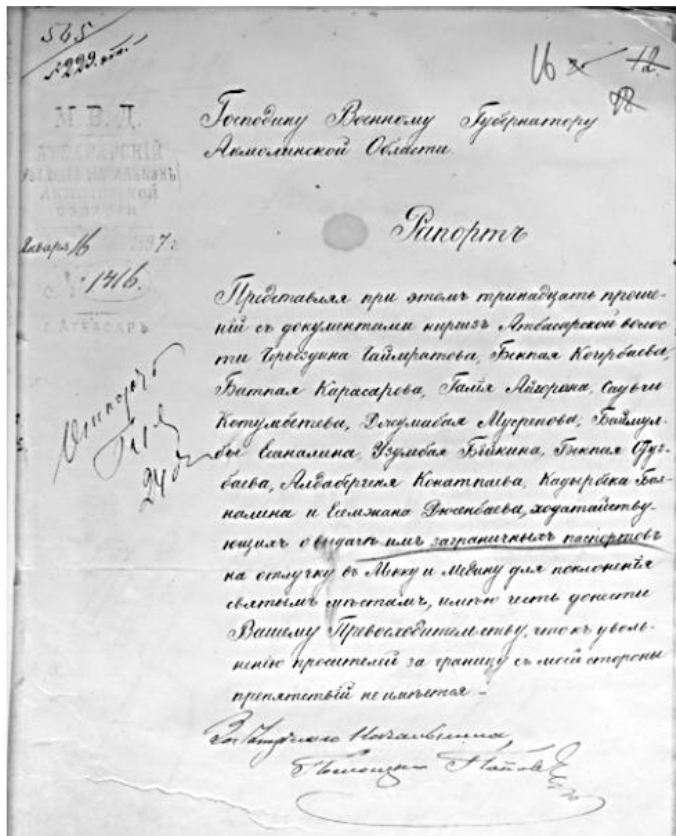 565
№ 229.
16 12.
М. В. Д.
АТБАСАРСКІЙ
УѢЗДНЫЙ НАЧАЛЬНИКЪ
АКМОЛИНСКОЙ
ОБЛАСТИ
Января 16 1897 г.
№ 1416.
г. АТБАСАРЪ
Господину Военному Губернатору
Акмолинской Области
Рапортъ
Представляя при этомъ тринадцать проше-
ній съ документами киргизъ Атбасарской волос
ти Чаймратова, Бекпая Кочурбаева,
Батпая Карасарова, Галія
Котумбетева, Джумабая Мусрепова, Баймул-
ды Есаналина, Узумбая Бейкина, Бекпая
баева, Алдабергеня Конатпаева, Кадырбека Бая-
налина и Есемжана Дюсенбаева, ходатайству-
ющихъ о выдачѣ имъ заграничныхъ паспортовъ
на отлучку въ Мекку и Медину для поклоненія
святымъ мѣстамъ, имѣю честь донести
Вашему Превосходительству, что къ уволь-
ненію просителей за границу съ моей стороны
препятствій не имѣется.
За Уѣзднаго Начальника,
Помощникъ Поповъ